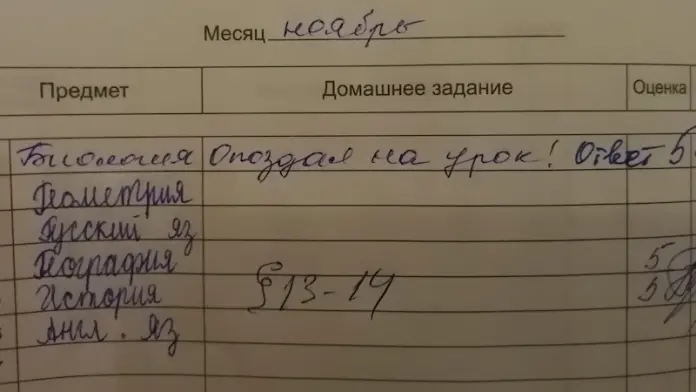 Месяц ноябрь
Предмет Домашнее задание Оценка
Биология Опоздал на урок! Ответ 5
Геометрия
Русский яз
География 5
История § 13-14 5
Англ. яз